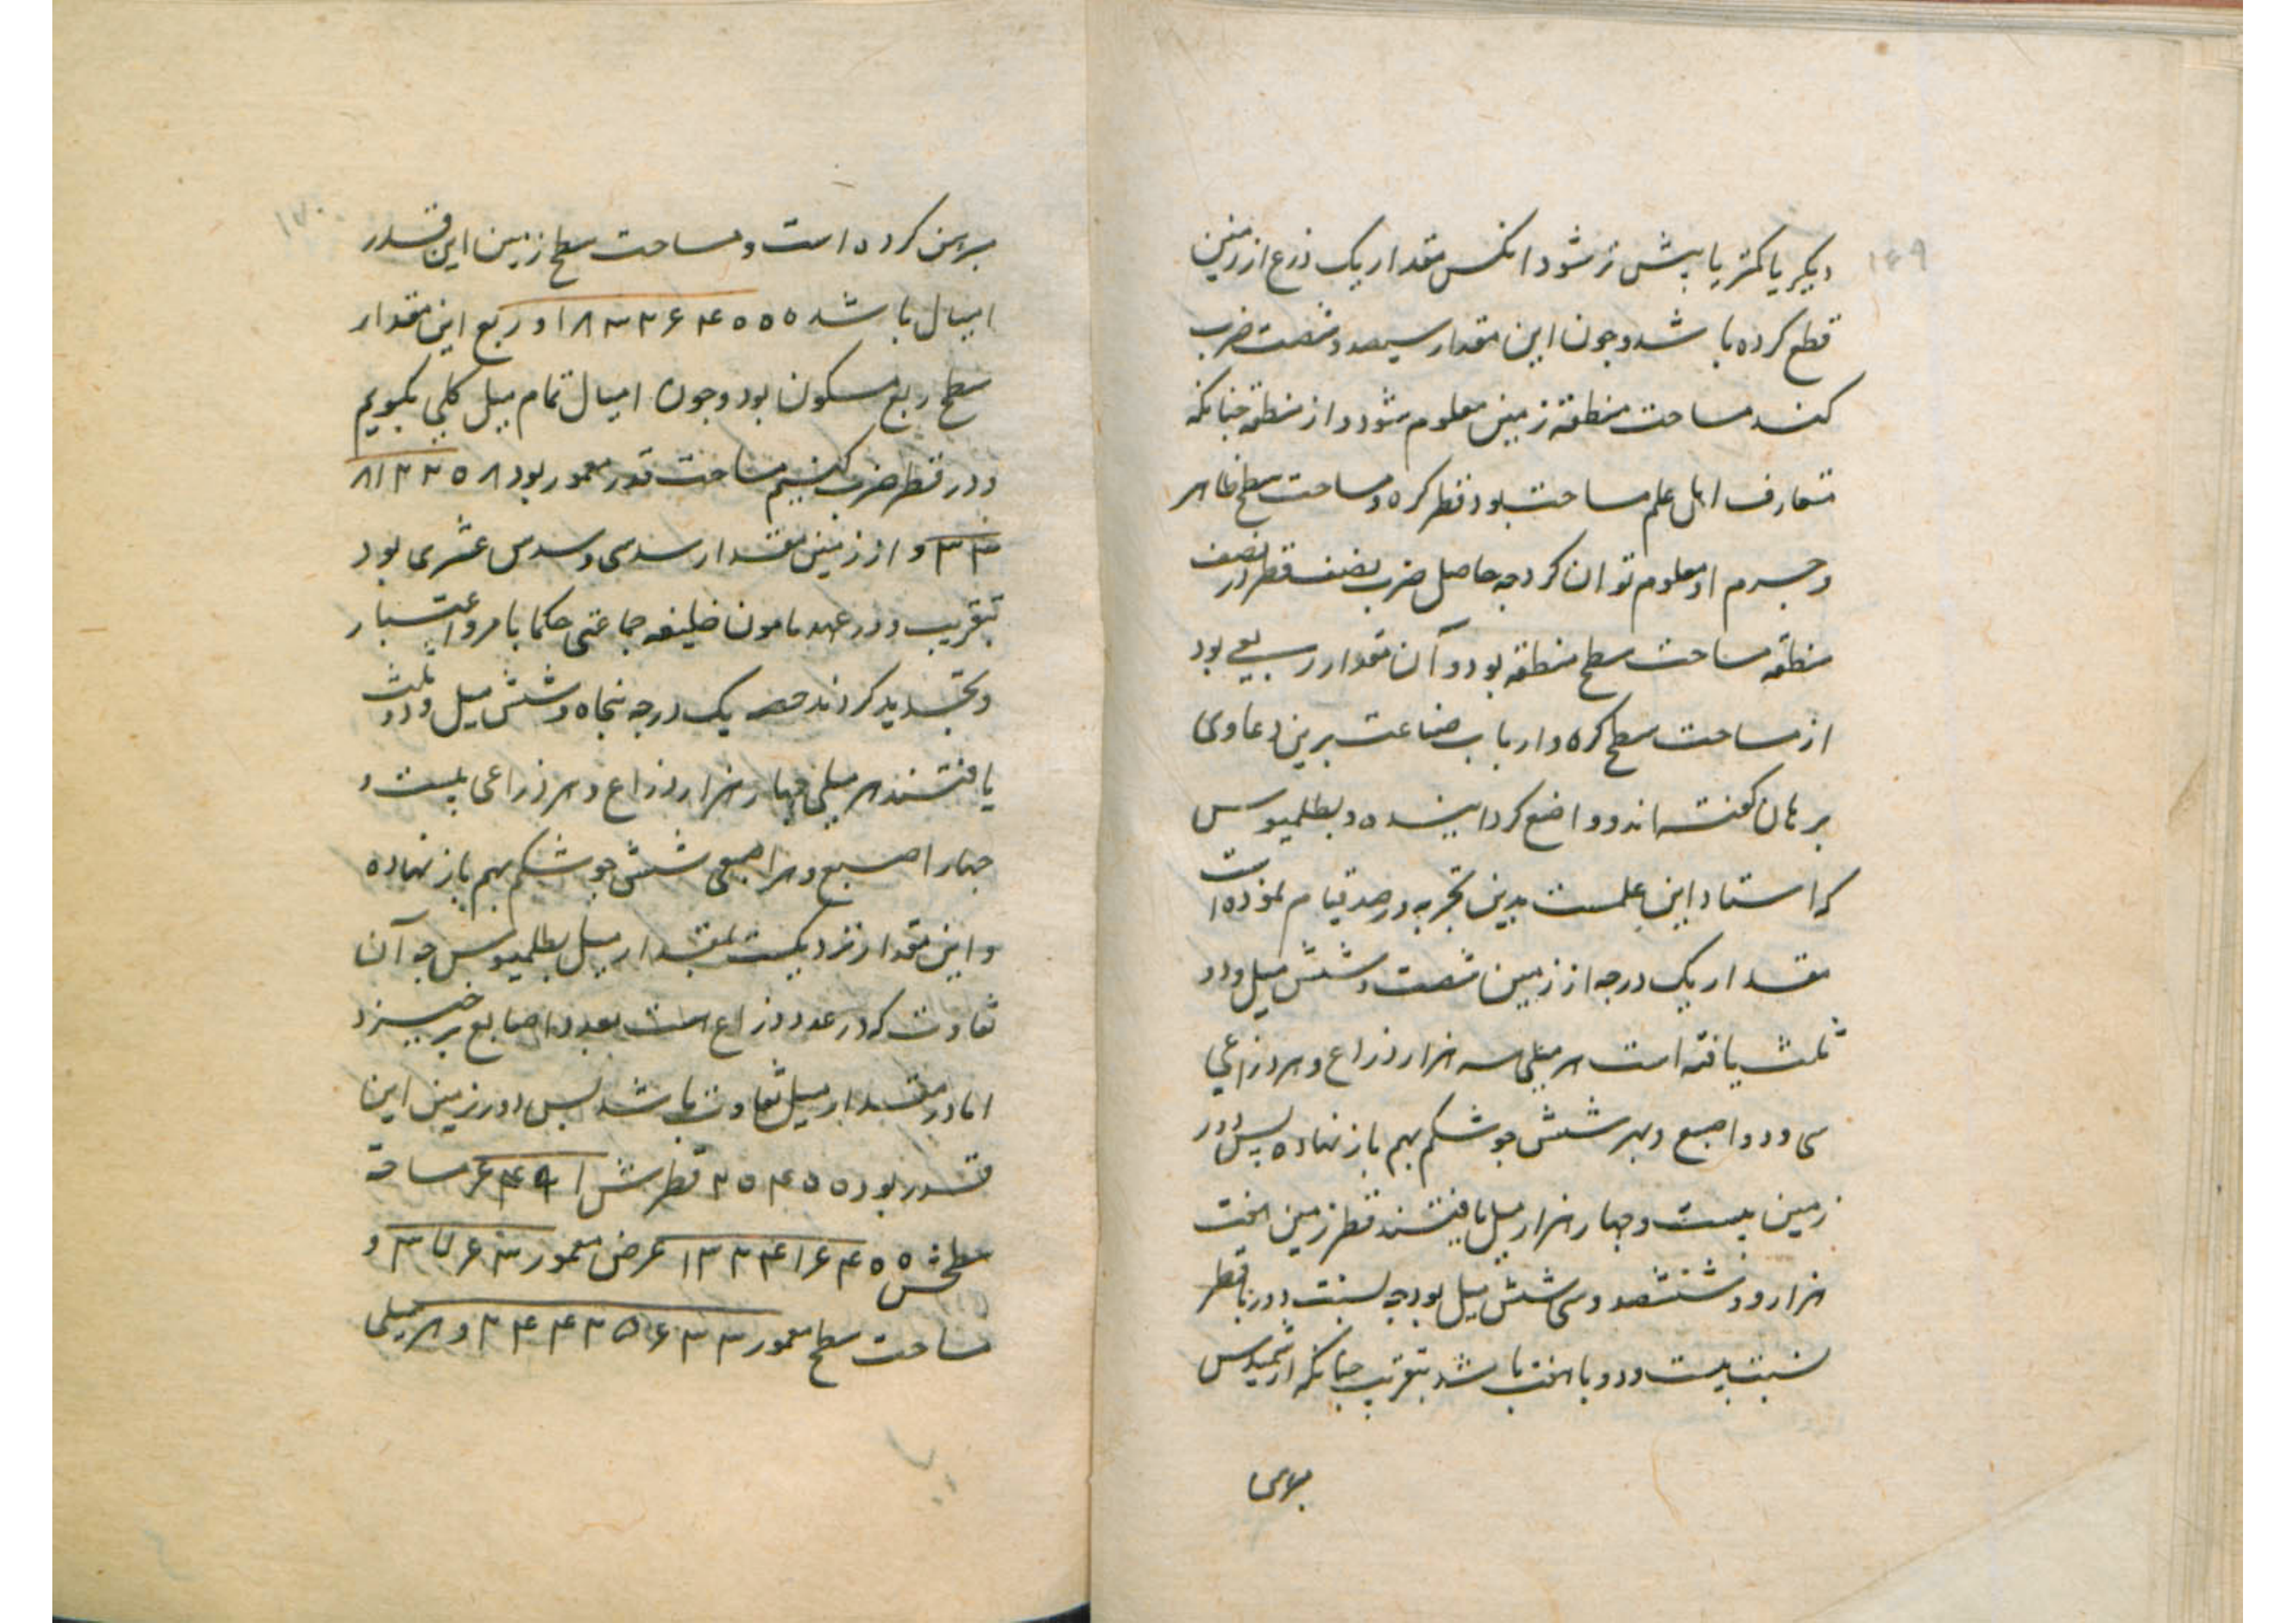 ۱۶۹
دیکر یا کمتر یا بیش تر شود انکس مقدار یک درج از زمین
قطع کرده باشد و چون این مقدار سیصد و شصت ضرب
کنند مساحت منطقه زمین معلوم شود و از منطقه چنانکه
متعارف اهل علم مساحت بود قطر کره و مساحت سطح ظاهر
و جرم او معلوم توان کرد چه حاصل ضرب نصف قطر در نصف
منطقه مساحت سطح منطقه بود و آن مقدار ربعی بود
از مساحت سطح کره و ارباب صناعت برین دعاوی
برهان کفته اند و واضح کردانیده و بطلمیوس
که استاد این علمست بدین تجربه در رصد قیام نموده است
مقدار یک درجه از زمین شصت و شش میل و دو
ثلث یافته است هر میلی سه هزار ذراع و هر ذراعی
سی و دو اصبع و بهر شش جو شکم بهم باز نهاده پس دور
زمین بیست و چهار هزار میل یافتند قطر زمین هفت
هزار و ششصد و سی شش میل بود چه نسبت دور با قطر
نسبت بیست و دو با هفت باشد بتقریب چنانکه ارشمیدس
۱۷۰
کرده است و مساحت سطح زمین این قدر
امیال باشد ۱۸۳۲۶۴۰۰۰ و ربع این مقدار
سطح ربع مسکون بود و چون امیال تمام میل کلی بکیریم
و در قطر ضرب کنیم مساحت قدر معمور بود
و از زمین مقدار سدسی و سدس عشری بود
بتقریب و در عهد مامون خلیفه جماعتی حکما بامر و اعتبار
و تجدید کردند حصه یک درجه پنجاه و شش میل و دو ثلث
یافتند هر میلی چهار هزار ذراع و هر ذراعی بیست و
چهار اصبع و هر اصبعی شش جو شکم بهم باز نهاده
و این مقدار نزدیکست بمقدار میل بطلمیوس چه آن
تفاوت که در عدد ذراع است بعدد اصابع برخیزد
اما در مقدار میل تفاوت باشد پس دور زمین این
قدر بود ۲۰۴۰۰ قطرش ۶۴۹۱ مساحة
سطحش ۱۳۲۴۱۶۴۰۰ عرض معمور ۳۷۶۳ و
مساحت سطح معمور ۲۴۴۲۵۶۳۳ و هر میلی